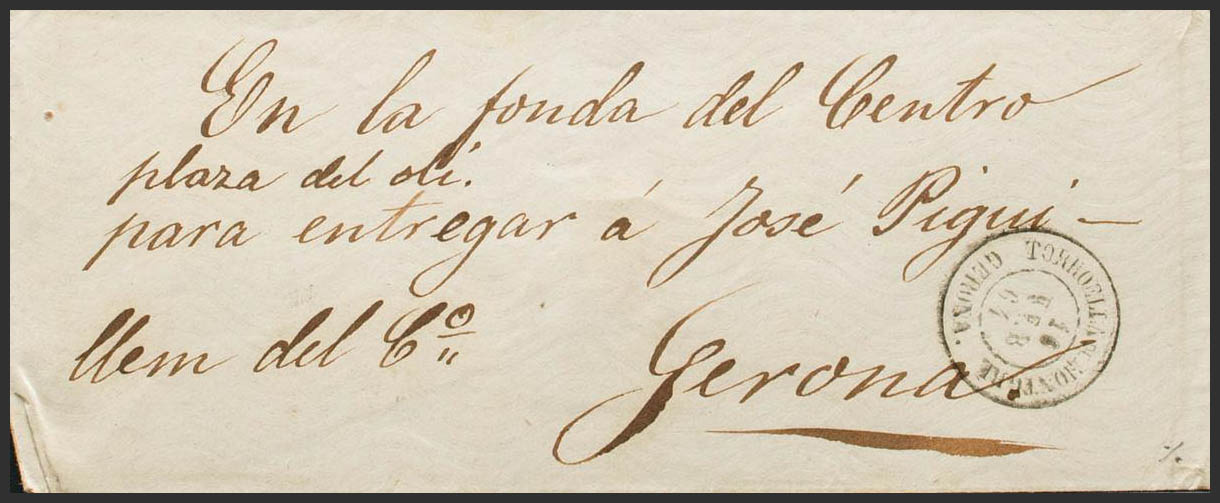 En la fonda del Centro
plaza del olí.
para entregar á José Pigui-
llem del Cº
Gerona.
TORROELLA DE MONTGRI. GERONA.
16
FEB
67